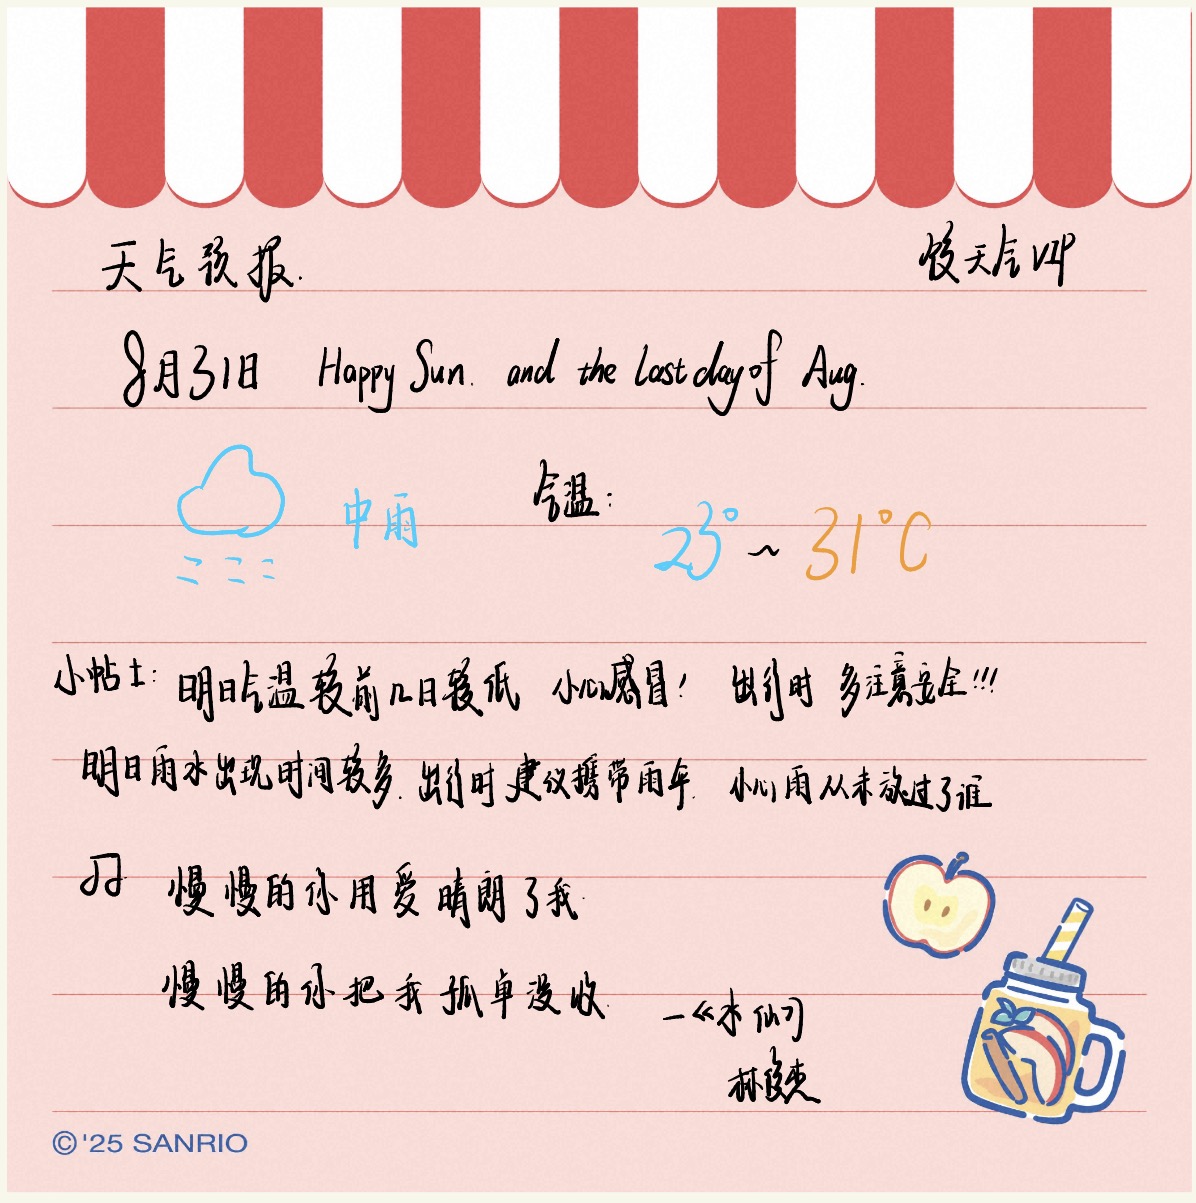 天气预报.
俊天气VIP
8月31日 Happy Sun. and the last day of Aug.
中雨 气温: 23°~31°C
小帖士: 明日气温较前几日较低 小心感冒! 出行时 多注意安全!!!
明日雨水出现时间较多. 出行时建议携带雨伞. 小心雨从未放过了谁
慢慢的你用爱晴朗了我.
慢慢的你把我孤单没收.
—《水仙》
林俊杰
©'25 SANRIO